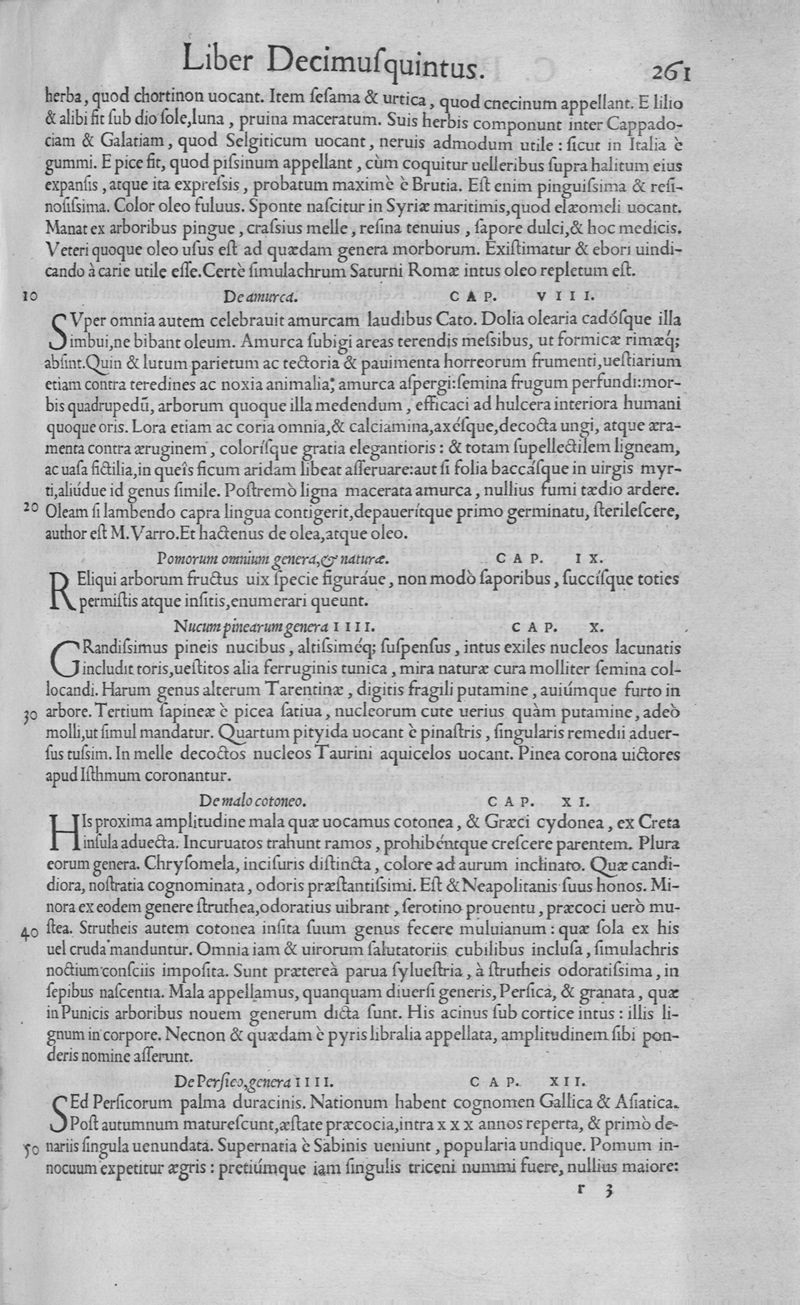 Liber Decimuſquintus. 261
herba, quod chortinon uocant. Item ſeſama & urtica, quod cnecinum appellant. E lilio
& alibi fit ſub dio ſole, luna, pruina maceratum. Suis herbis componunt inter Cappado-
ciam & Galatiam, quod Selgiticum uocant, neruis admodum utile: ſicut in Italia è
gummi. E pice fit, quod piſsinum appellant, cùm coquitur uelleribus ſupra halitum eius
expanſis, atque ita expreſsis, probatum maximè è Brutia. Eſt enim pinguiſsima & reſi-
noſiſsima. Color oleo fuluus. Sponte naſcitur in Syriæ maritimis, quod elæomeli uocant.
Manat ex arboribus pingue, craſsius melle, reſina tenuius, ſapore dulci, & hoc medicis.
Veteri quoque oleo uſus eſt ad quædam genera morborum. Exiſtimatur & ebori uindi-
cando à carie utile eſſe. Certè ſimulachrum Saturni Romæ intus oleo repletum eſt.
10 De amurca. CAP. VIII.
SVper omnia autem celebrauit amurcam laudibus Cato. Dolia olearia cadóſque illa
imbui, ne bibant oleum. Amurca ſubigi areas terendis meſsibus, ut formicæ rimæq;
abſint. Quin & lutum parietum ac tectoria & pauimenta horreorum frumenti, ueſtiarium
etiam contra teredines ac noxia animalia; amurca aſpergi: ſemina frugum perfundi: mor-
bis quadrupedũ, arborum quoque illa medendum, efficaci ad hulcera interiora humani
quoque oris. Lora etiam ac coria omnia, & calciamina, axéſque, decocta ungi, atque æra-
menta contra æruginem, coloríſque gratia elegantioris: & totam ſupellectilem ligneam,
ac uaſa fictilia, in queîs ficum aridam libeat aſſeruare: aut ſi folia baccáſque in uirgis myr-
ti, aliúdue id genus ſimile. Poſtremò ligna macerata amurca, nullius fumi tædio ardere.
20 Oleam ſi lambendo capra lingua contigerit, depauerítque primo germinatu, ſterileſcere,
author eſt M. Varro. Et hactenus de olea, atque oleo.
Pomorum omnium genera, & naturæ. CAP. IX.
REliqui arborum fructus uix ſpecie figuráue, non modò ſaporibus, ſuccíſque toties
permiſtis atque inſitis, enumerari queunt.
Nucum pinearum genera IIII. CAP. X.
GRandiſsimus pineis nucibus, altiſsiméq; ſuſpenſus, intus exiles nucleos lacunatis
includit toris, ueſtitos alia ferruginis tunica, mira naturæ cura molliter ſemina col-
locandi. Harum genus alterum Tarentinæ, digitis fragili putamine, auiúmque furto in
30 arbore. Tertium ſapineæ è picea ſatiua, nucleorum cute uerius quàm putamine, adeò
molli, ut ſimul mandatur. Quartum pityida uocant è pinaſtris, ſingularis remedii aduer-
ſus tuſsim. In melle decoctos nucleos Taurini aquicelos uocant. Pinea corona uictores
apud Iſthmum coronantur.
De malo cotoneo. CAP. XI.
HIs proxima amplitudine mala quæ uocamus cotonea, & Græci cydonea, ex Creta
inſula aduecta. Incuruatos trahunt ramos, prohibéntque creſcere parentem. Plura
eorum genera. Chryſomela, inciſuris diſtincta, colore ad aurum inclinato. Quæ candi-
diora, noſtratia cognominata, odoris præſtantiſsimi. Eſt & Neapolitanis ſuus honos. Mi-
nora ex eodem genere ſtruthea, odoratius uibrant, ſerotino prouentu, præcoci uerò mu-
40 ſtea. Strutheis autem cotonea inſita ſuum genus fecere muluianum: quæ ſola ex his
uel cruda manduntur. Omnia iam & uirorum ſalutatoriis cubilibus incluſa, ſimulachris
noctium conſciis impoſita. Sunt prætereà parua ſylueſtria, à ſtrutheis odoratiſsima, in
ſepibus naſcentia. Mala appellamus, quanquam diuerſi generis, Perſica, & granata, quæ
in Punicis arboribus nouem generum dicta ſunt. His acinus ſub cortice intus: illis li-
gnum in corpore. Necnon & quædam è pyris libralia appellata, amplitudinem ſibi pon-
deris nomine aſſerunt.
De Perſico, genera IIII. CAP. XII.
SEd Perſicorum palma duracinis. Nationum habent cognomen Gallica & Aſiatica.
Poſt autumnum matureſcunt, æſtate præcocia, intra xxx annos reperta, & primò de-
50 nariis ſingula uenundata. Supernatia è Sabinis ueniunt, popularia undique. Pomum in-
nocuum expetitur ægris: pretiúmque iam ſingulis triceni nummi fuere, nullius maiore:
r 3